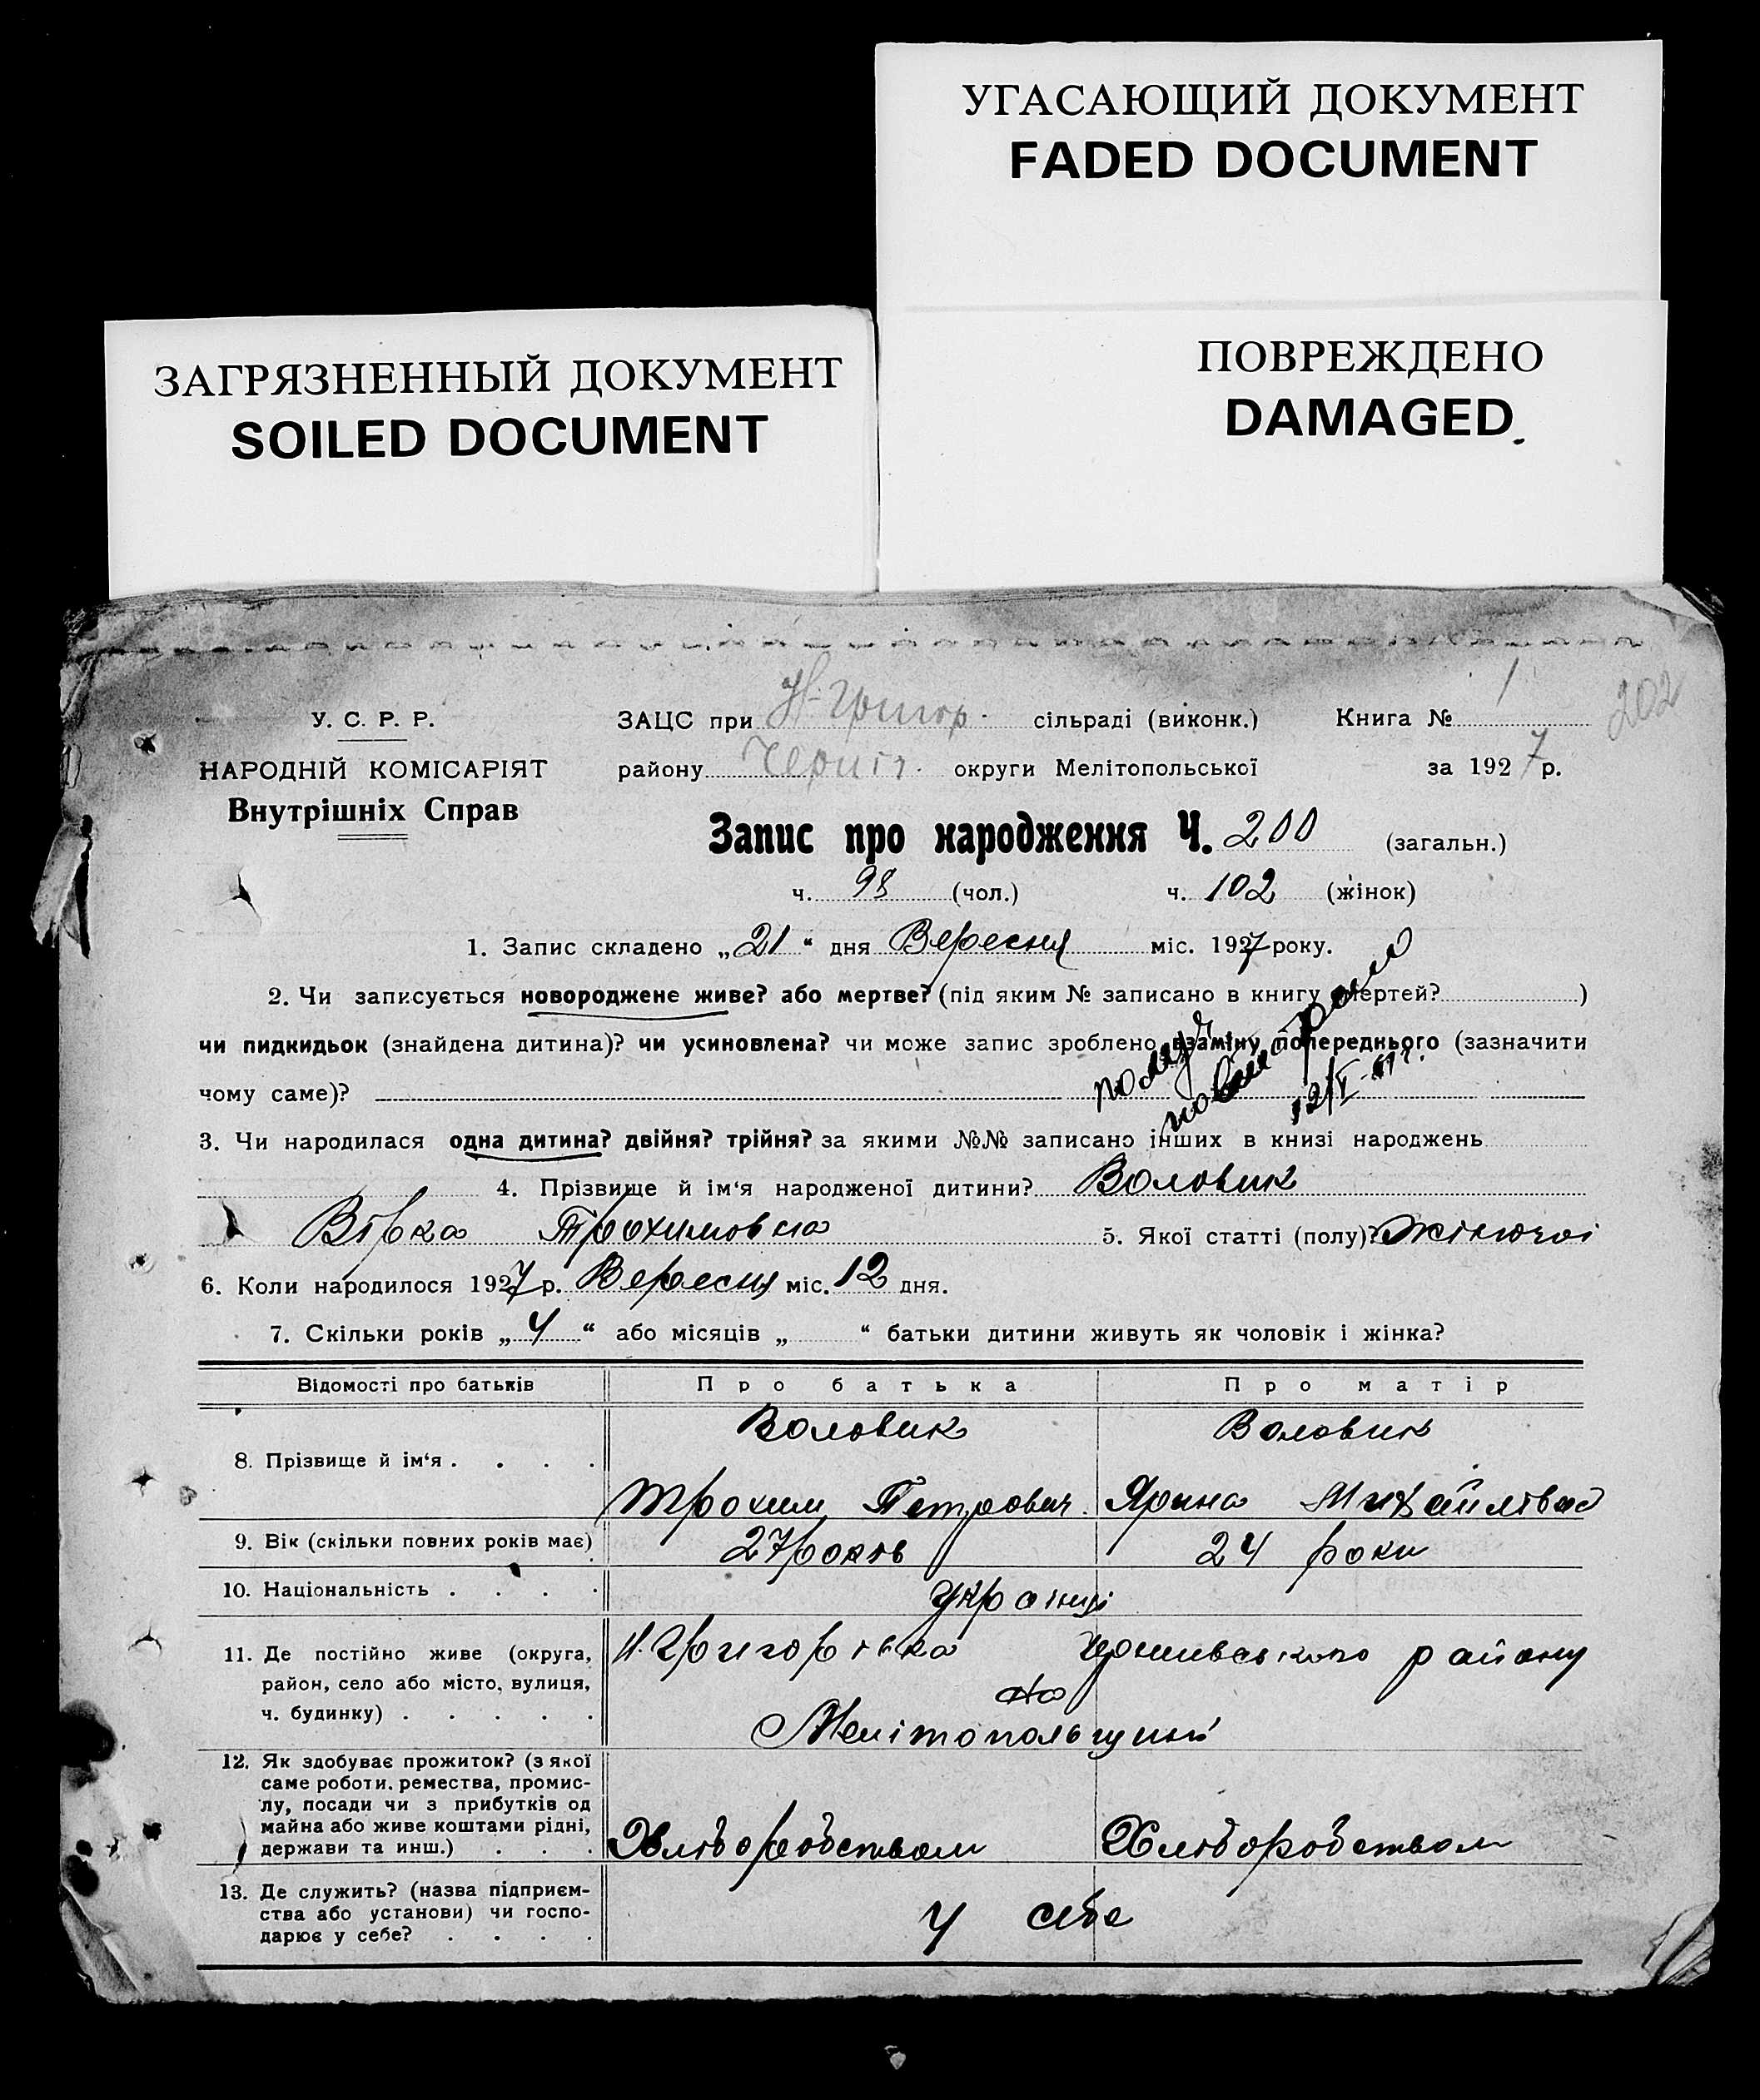 УГАСАЮЩИЙ ДОКУМЕНТ
FADED DOCUMENT
ЗАГРЯЗНЕННЫЙ ДОКУМЕНТ
SOILED DOCUMENT
ПОВРЕЖДЕНО
DAMAGED
202
У. С. Р. Р.
НАРОДНІЙ КОМІСАРІЯТ
Внутрішніх Справ
ЗАЦС при Н-Григор. сільраді (виконк.) Книга № 1
району Черніг. округи Мелітопольської за 1927 р.
Запис про народження Ч. 200 (загальн.)
ч. 98 (чол.) ч. 102 (жінок)
1. Запис складено „21“ дня Вересня міс. 1927 року.
2. Чи записується новороджене живе? або мертве? (під яким № записано в книгу смертей? )
чи пидкидьок (знайдена дитина)? чи усиновлена? чи може запис зроблено взаміну попереднього (зазначити
чому саме)?
3. Чи народилася одна дитина? двійня? трійня? за якими №№ записано інших в книзі народжень
4. Прізвище й ім‘я народженої дитини? Воловик
Вірка Трохимовна 5. Якої статті (полу)? жіночоі
6. Коли народилося 1927 р. Вересня міс. 12 дня.
7. Скільки років „4“ або місяців „ “ батьки дитини живуть як чоловік і жінка?
Відомості про батьків Про батька Про матір
8. Прізвище й ім‘я . . . . Воловик Воловик
Трохим Петрович Ярина Михайлівна
9. Вік (скільки повних років має) 27 років 24 роки
10. Національність . . . . українці
11. Де постійно живе (округа, район, село або місто, вулиця, ч. будинку) . . . . . Н. Григорівка району
Мелітопольщині
12. Як здобуває прожиток? (з якої саме роботи, ремества, промислу, посади чи з прибутків од майна або живе коштами рідні, держави та инш.) . . . Хліборобством Хліборобством
13. Де служить? (назва підприємства або установи) чи господарює у себе? . . . . У себе